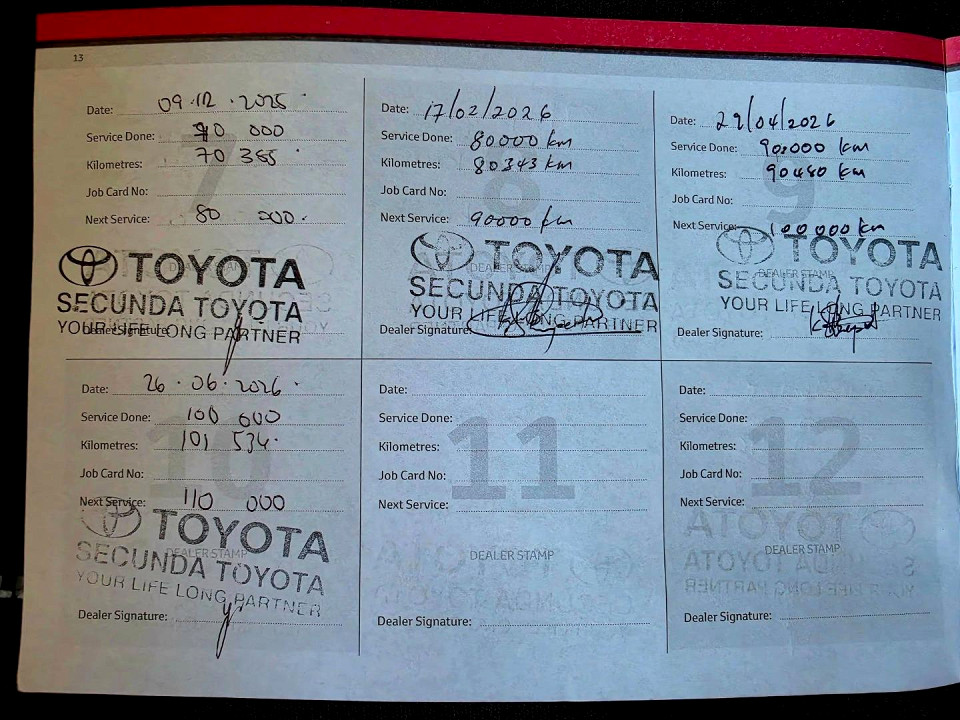 13
Date: 09.12.2025
Service Done: 70 000
Kilometres: 70 365
Job Card No:
Next Service: 80 000.
DEALER STAMP
TOYOTA
SECUNDA TOYOTA
YOUR LIFE LONG PARTNER
Dealer Signature:
7
Date: 17/02/2026
Service Done: 80000 km
Kilometres: 80343 km
Job Card No:
Next Service: 90000 km
DEALER STAMP
TOYOTA
SECUNDA TOYOTA
YOUR LIFE LONG PARTNER
Dealer Signature:
8
Date: 29/04/2026
Service Done: 90000 km
Kilometres: 90480 km
Job Card No:
Next Service: 100000 km
DEALER STAMP
TOYOTA
SECUNDA TOYOTA
YOUR LIFE LONG PARTNER
Dealer Signature:
9
Date: 26.06.2026
Service Done: 100 000
Kilometres: 101 534
Job Card No:
Next Service: 110 000
DEALER STAMP
TOYOTA
SECUNDA TOYOTA
YOUR LIFE LONG PARTNER
Dealer Signature:
10
Date:
Service Done:
Kilometres:
Job Card No:
Next Service:
DEALER STAMP
Dealer Signature:
11
Date:
Service Done:
Kilometres:
Job Card No:
Next Service:
DEALER STAMP
Dealer Signature:
12